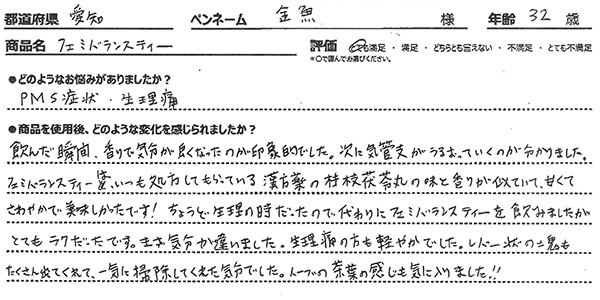 都道府県 愛知 ペンネーム 金魚 様 年齢 32 歳
商品名 フェミバランスティー 評価 とても満足 ・ 満足 ・ どちらとも言えない ・ 不満足 ・ とても不満足
*○で囲んでお選びください。
●どのようなお悩みがありましたか?
PMS症状・生理痛
●商品を使用後、どのような変化を感じられましたか?
飲んだ瞬間、香りで気分が良くなったのが印象的でした。次に気管支がうるおっていくのが分かりました。
フェミバランスティーは、いつも処方してもらっている漢方薬の桂枝茯苓丸の味と香りが似ていて、甘くて
さわやかで美味しかったです!ちょうど生理の時だったので、代わりにフェミバランスティーを飲みましたが
とてもラクだったです。まず気分が違いました。生理痛の方も軽やかでした。レバー状の塊も
たくさん出てくれて、一気に掃除してくれた気分でした。ハーブの茶葉の感じも気に入りました!!